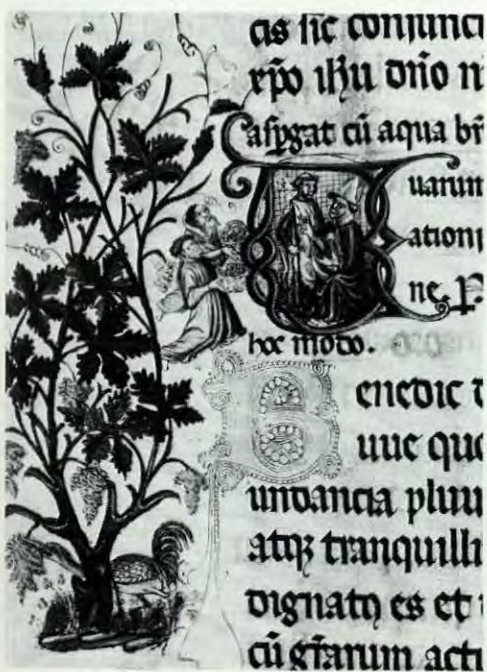 cis sic coniunct
xp̄o ih̄u dn̄o n
aspgat cū aqua bn̄
Uuarum
ationi
ne. P.
hoc modo.
Benedic
uue quo
undancia pluui
atqꝫ tranquilli
dignatꝯ es et
cū grārum acti